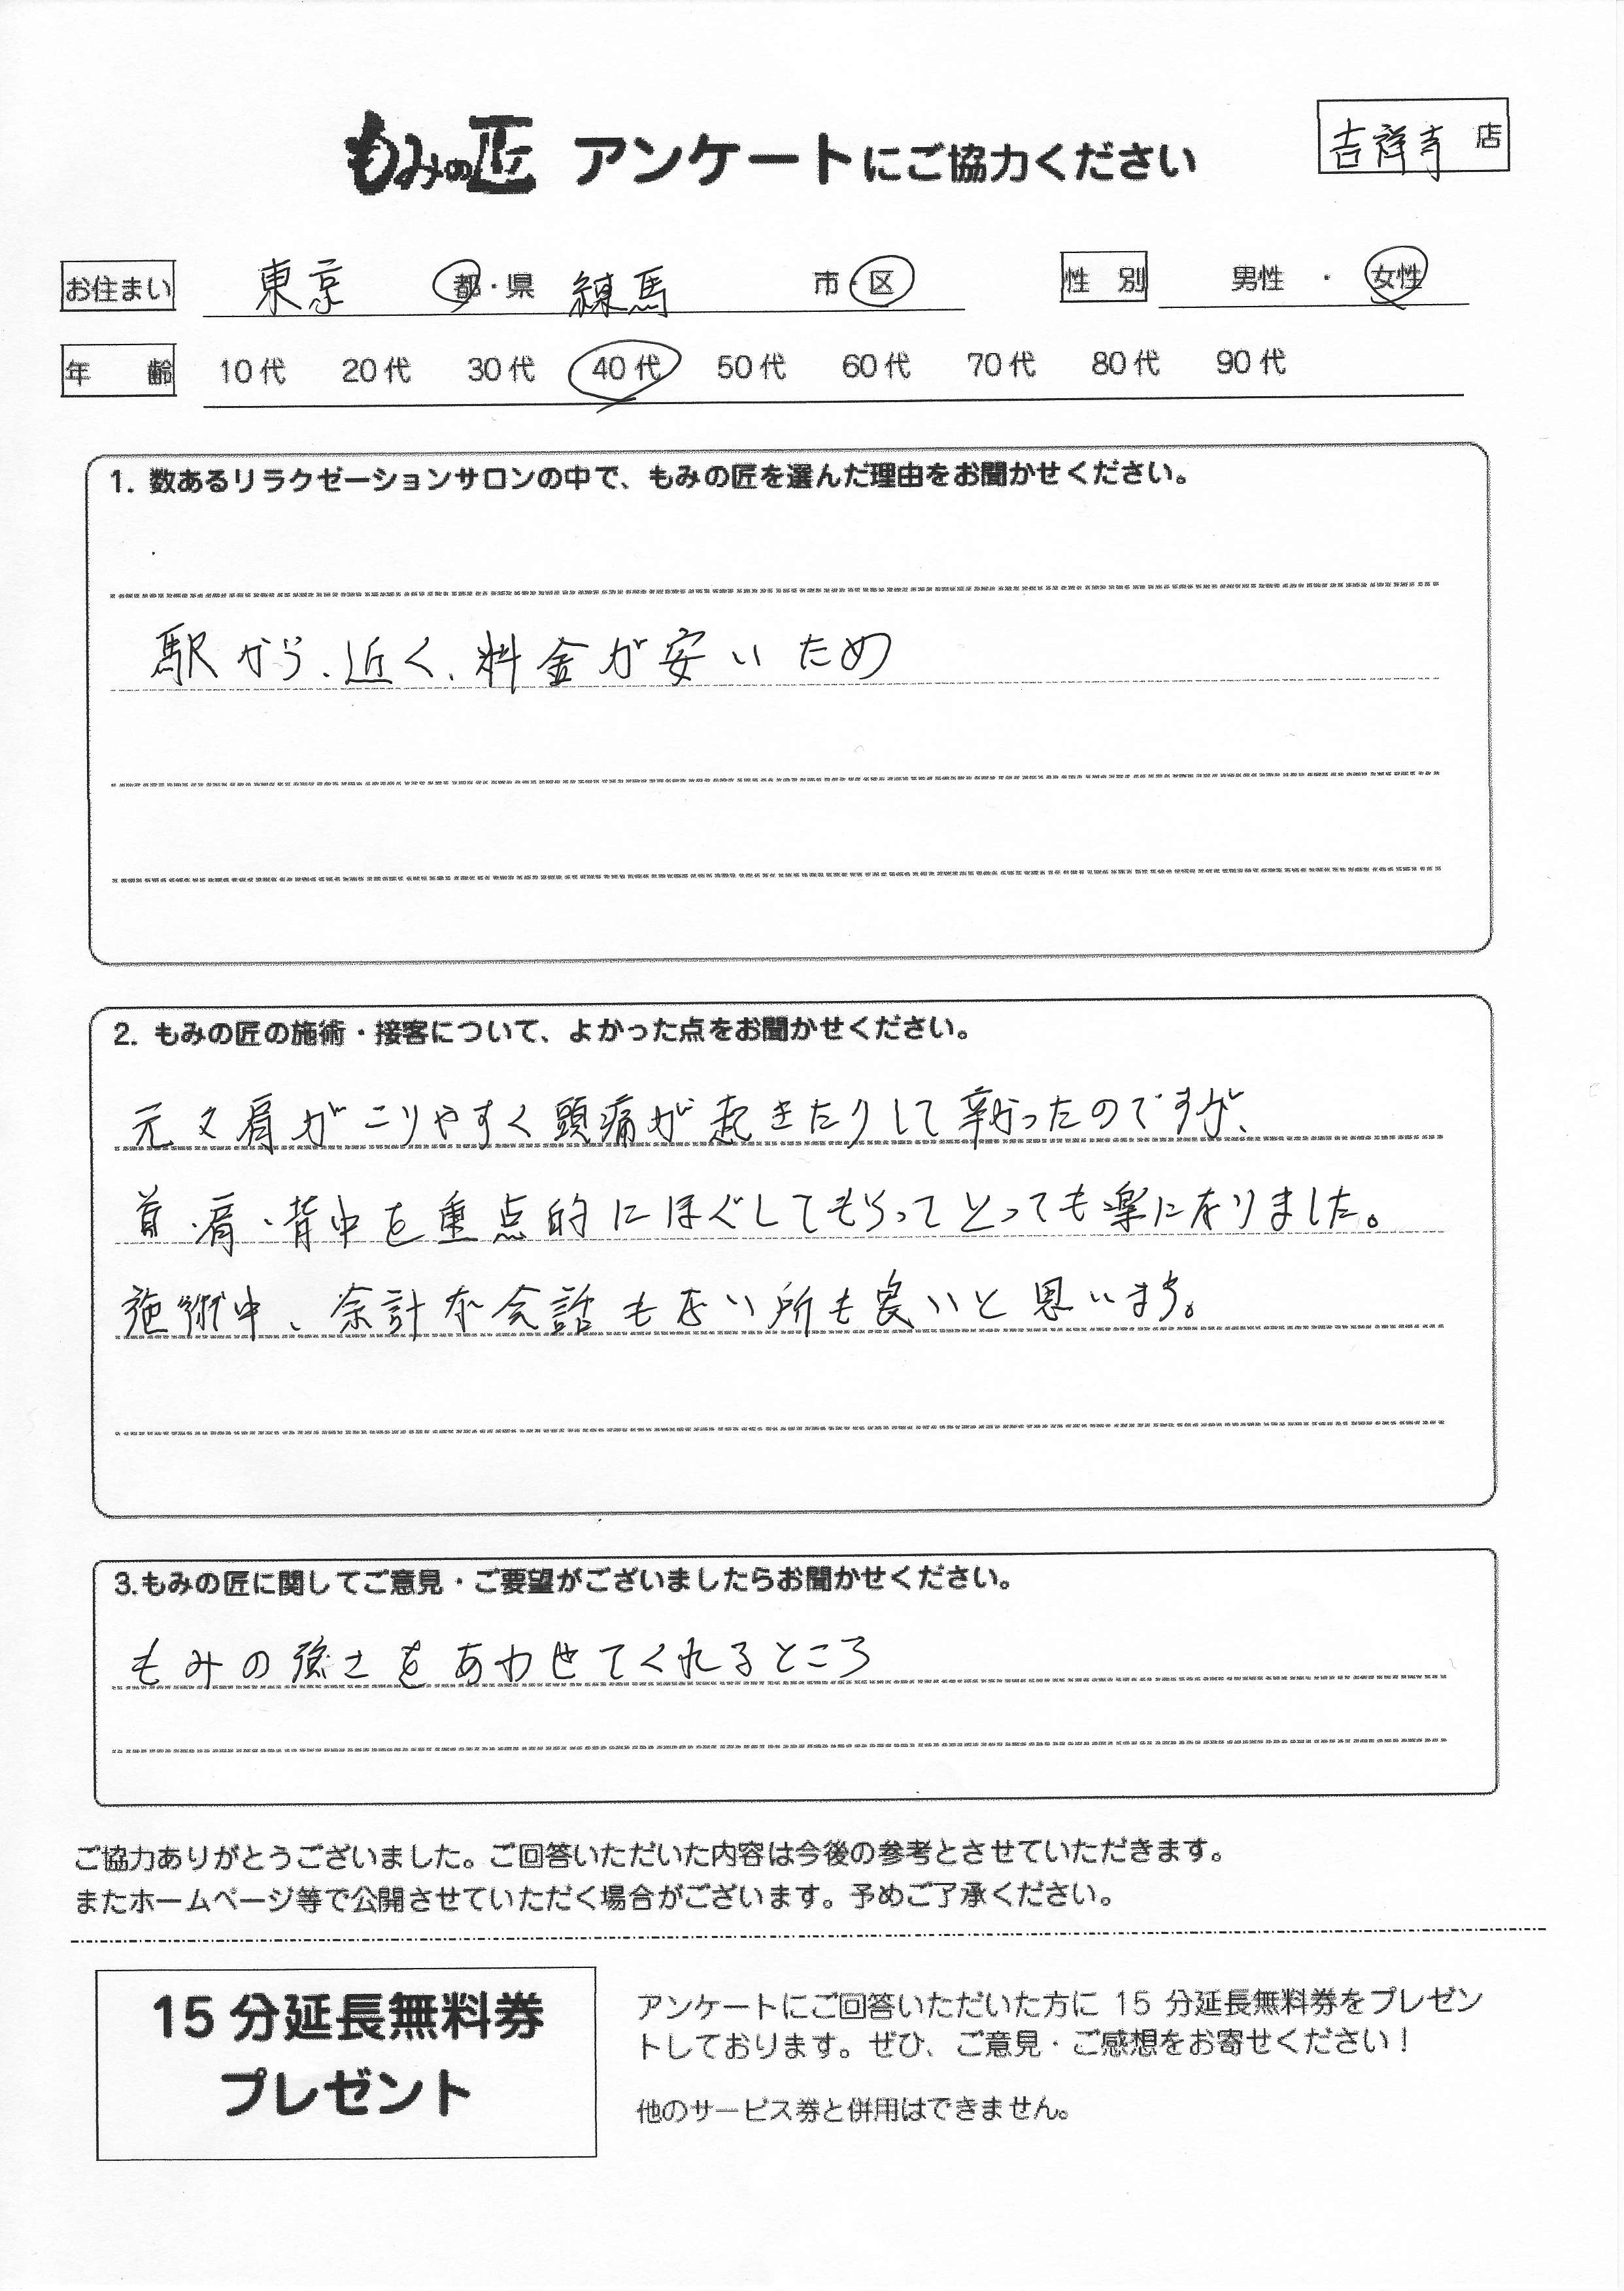 もみの匠 アンケートにご協力ください
吉祥寺 店
お住まい 東京 都・県 練馬 市・区 性 別 男性 ・ 女性
年 齢 10代 20代 30代 40代 50代 60代 70代 80代 90代
1. 数あるリラクゼーションサロンの中で、もみの匠を選んだ理由をお聞かせください。
駅から、近く、料金が安いため
2. もみの匠の施術・接客について、よかった点をお聞かせください。
元々肩がこりやすく頭痛が起きたりして辛かったのですが、
首・肩・背中を重点的にほぐしてもらってとっても楽になりました。
施術中、余計な会話もない所も良いと思います。
3.もみの匠に関してご意見・ご要望がございましたらお聞かせください。
もみの強さをあわせてくれるところ
ご協力ありがとうございました。ご回答いただいた内容は今後の参考とさせていただきます。
またホームページ等で公開させていただく場合がございます。予めご了承ください。
15分延長無料券
プレゼント
アンケートにご回答いただいた方に 15 分延長無料券をプレゼン
トしております。ぜひ、ご意見・ご感想をお寄せください！
他のサービス券と併用はできません。